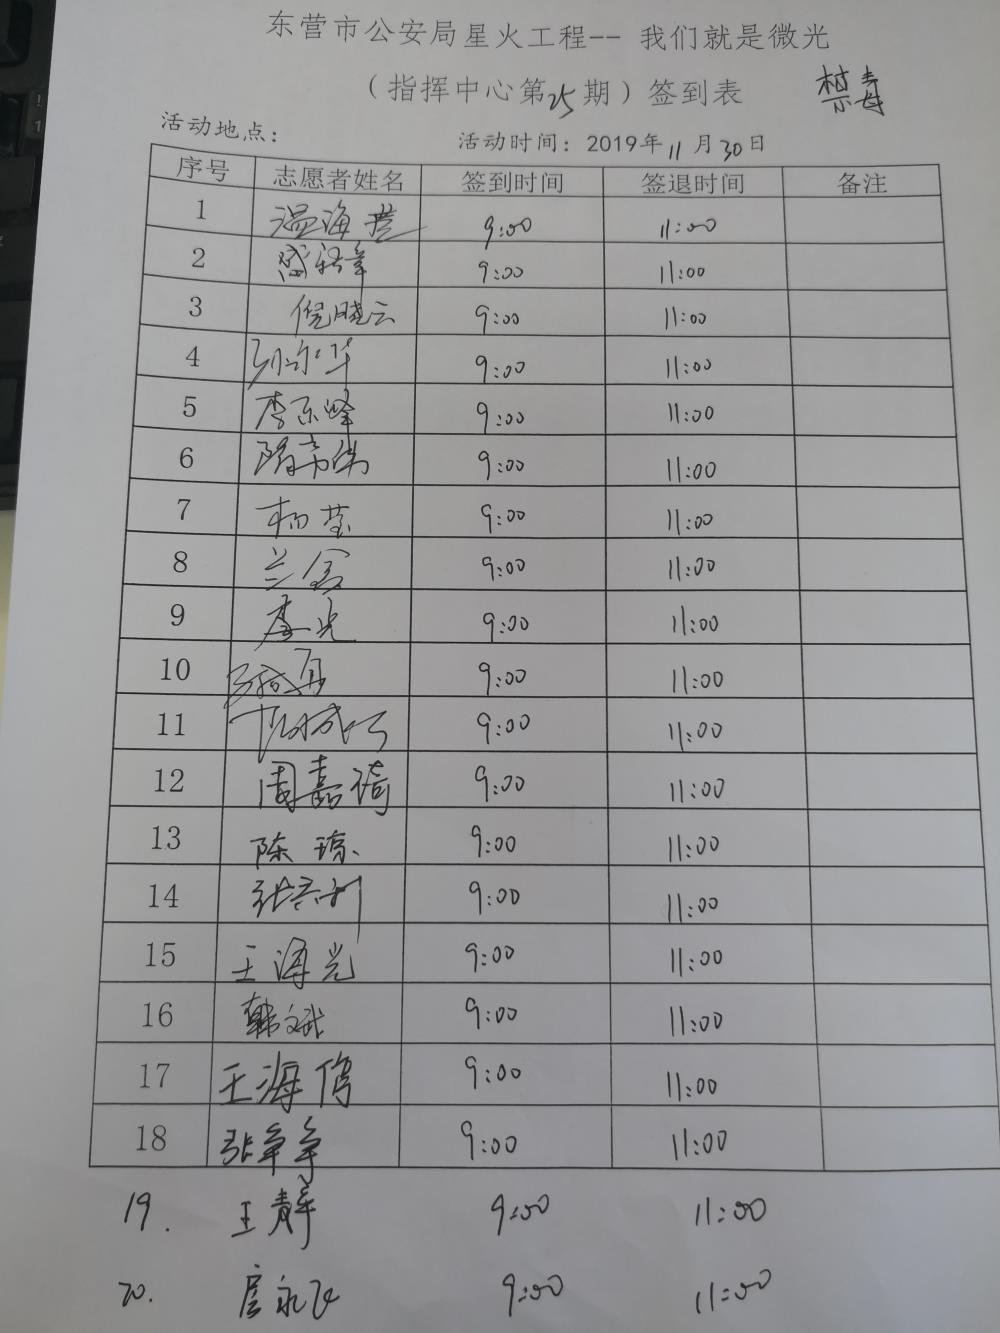 东营市公安局星火工程-- 我们就是微光
(指挥中心第25期)签到表 禁毒
活动地点: 活动时间: 2019年11月30日
序号 志愿者姓名 签到时间 签退时间 备注
1 温海 9:00 11:00
2 9:00 11:00
3 倪晓云 9:00 11:00
4 9:00 11:00
5 李东峰 9:00 11:00
6 9:00 11:00
7 杨莹 9:00 11:00
8 兰 9:00 11:00
9 李光 9:00 11:00
10 9:00 11:00
11 9:00 11:00
12 周嘉琦 9:00 11:00
13 陈琼 9:00 11:00
14 9:00 11:00
15 王海光 9:00 11:00
16 韩文武 9:00 11:00
17 王海信 9:00 11:00
18 张争争 9:00 11:00
19. 王静 9:00 11:00
20. 永飞 9:00 11:00